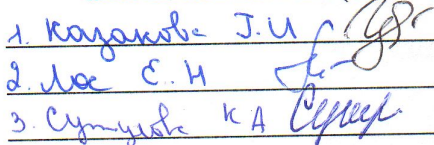 1. Казакова Г.И
2. Лос Е.Н
3. Сутулова К А